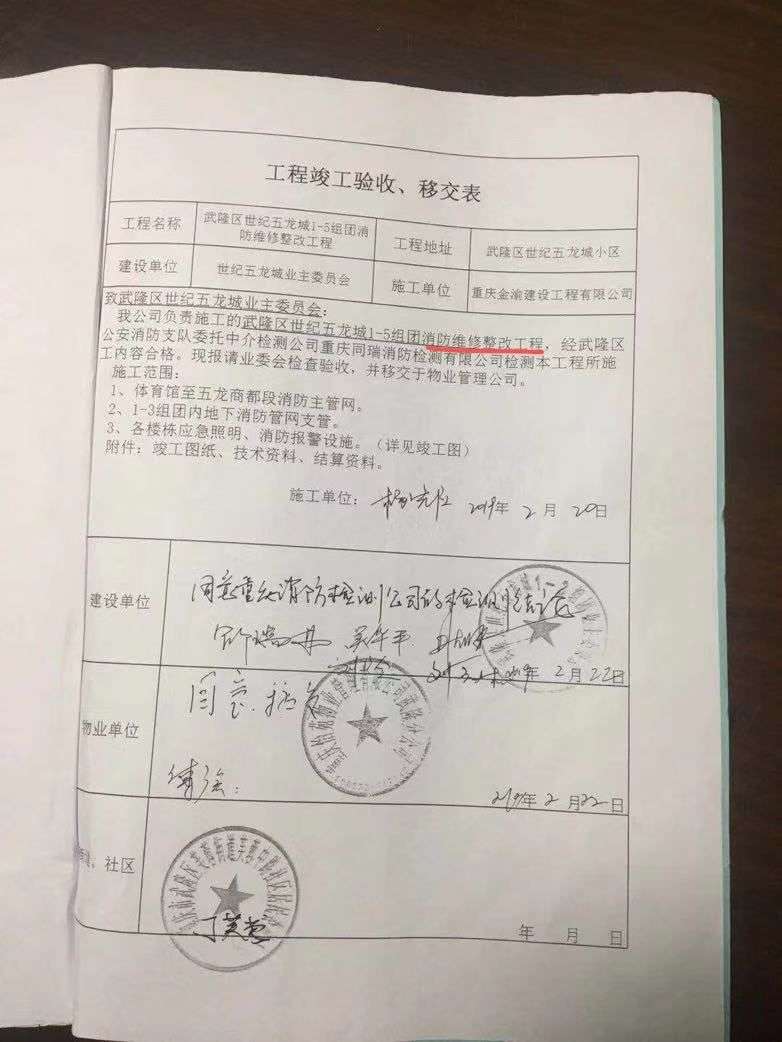 工程竣工验收、移交表
工程名称 武隆区世纪五龙城1-5组团消防维修整改工程 工程地址 武隆区世纪五龙城小区
建设单位 世纪五龙城业主委员会 施工单位 重庆金渝建设工程有限公司
致武隆区世纪五龙城业主委员会：
我公司负责施工的武隆区世纪五龙城1-5组团消防维修整改工程，经武隆区
公安消防支队委托中介检测公司重庆同瑞消防检测有限公司检测本工程所施
工内容合格。现报请业委会检查验收，并移交于物业管理公司。
施工范围：
1、体育馆至五龙商都段消防主管网。
2、1-3组团内地下消防管网支管。
3、各楼栋应急照明、消防报警设施。（详见竣工图）
附件：竣工图纸、技术资料、结算资料。
施工单位： 2019年 2 月 20日
建设单位
同意重庆消防检测公司的检测结论
2019年 2 月 22日
物业单位
同意
2019年 2 月 22日
、社区
年 月 日